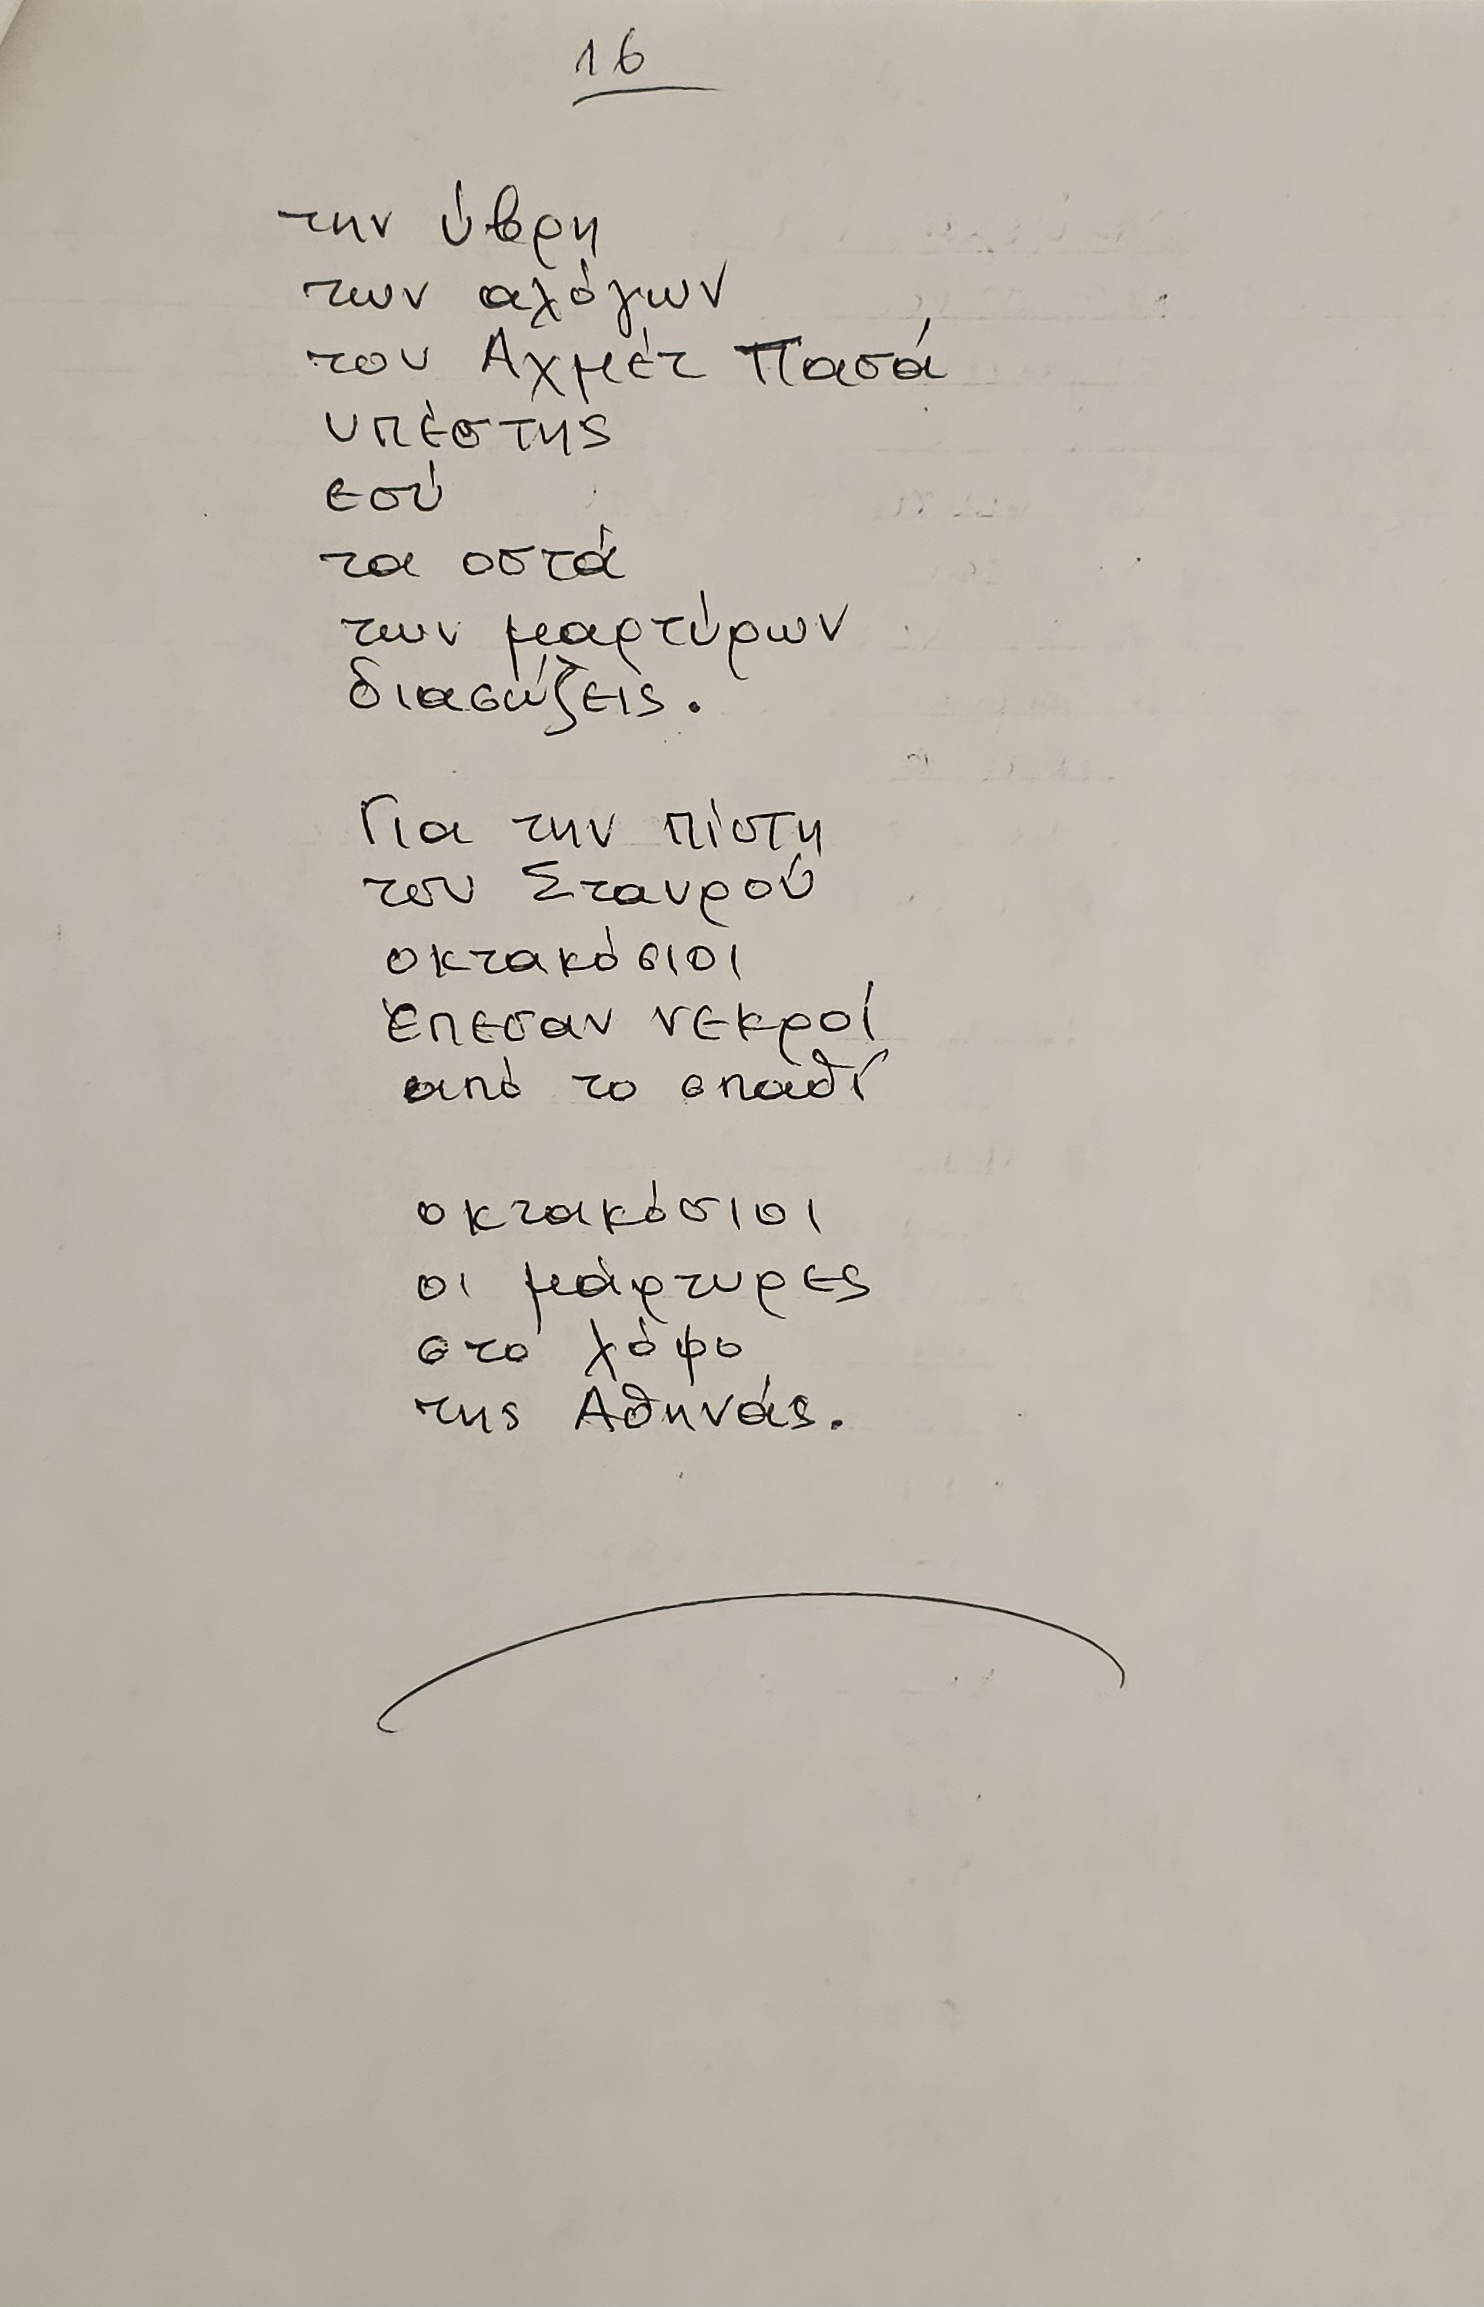 16
την ύβρη
των αλόγων
του Αχμέτ Πασά
υπέστης
εσύ
τα οστά
των μαρτύρων
διασώζεις.
Για την πίστη
του Σταυρού
οκτακόσιοι
έπεσαν νεκροί
από το σπαθί
οκτακόσιοι
οι μάρτυρες
στο λόφο
της Αθηνάς.